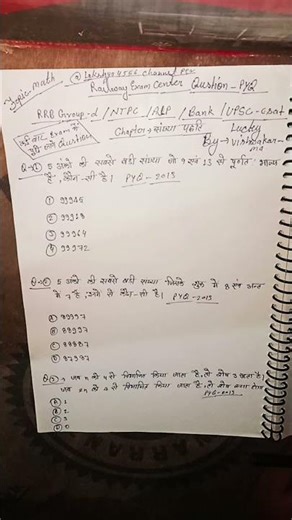 Topic - Math
Railway Exam Center Qustion - PYQ
RRB Group-d / NTPC / ALP / Bank / UPSC - csat
Chapter → संख्या पद्धति
Lucky
By → Vishwakarma
Q→① 5 अंकों की सबसे बड़ी संख्या जो 9 एवं 13 से पूर्णतः भाज्य
है, कौन-सी है। PYQ - 2013
① 99945
② 99918
③ 99964
④ 99972
Q→② 5 अंकों की सबसे बड़ी संख्या जिसके शुरू में 8 एवं अन्त
में 7 है PYQ - 2013
Ⓐ 89997
Ⓑ 89997
Ⓒ
Ⓓ 87987
Q③→ जब n को 4 से विभाजित किया जाता है, तो शेष 3 बचता है।
जब 2n को 4 से विभाजित किया जाता है, तो शेष क्या होगा
PYQ - 2013
Ⓐ 1
Ⓑ 2
Ⓒ 3
Ⓓ 0